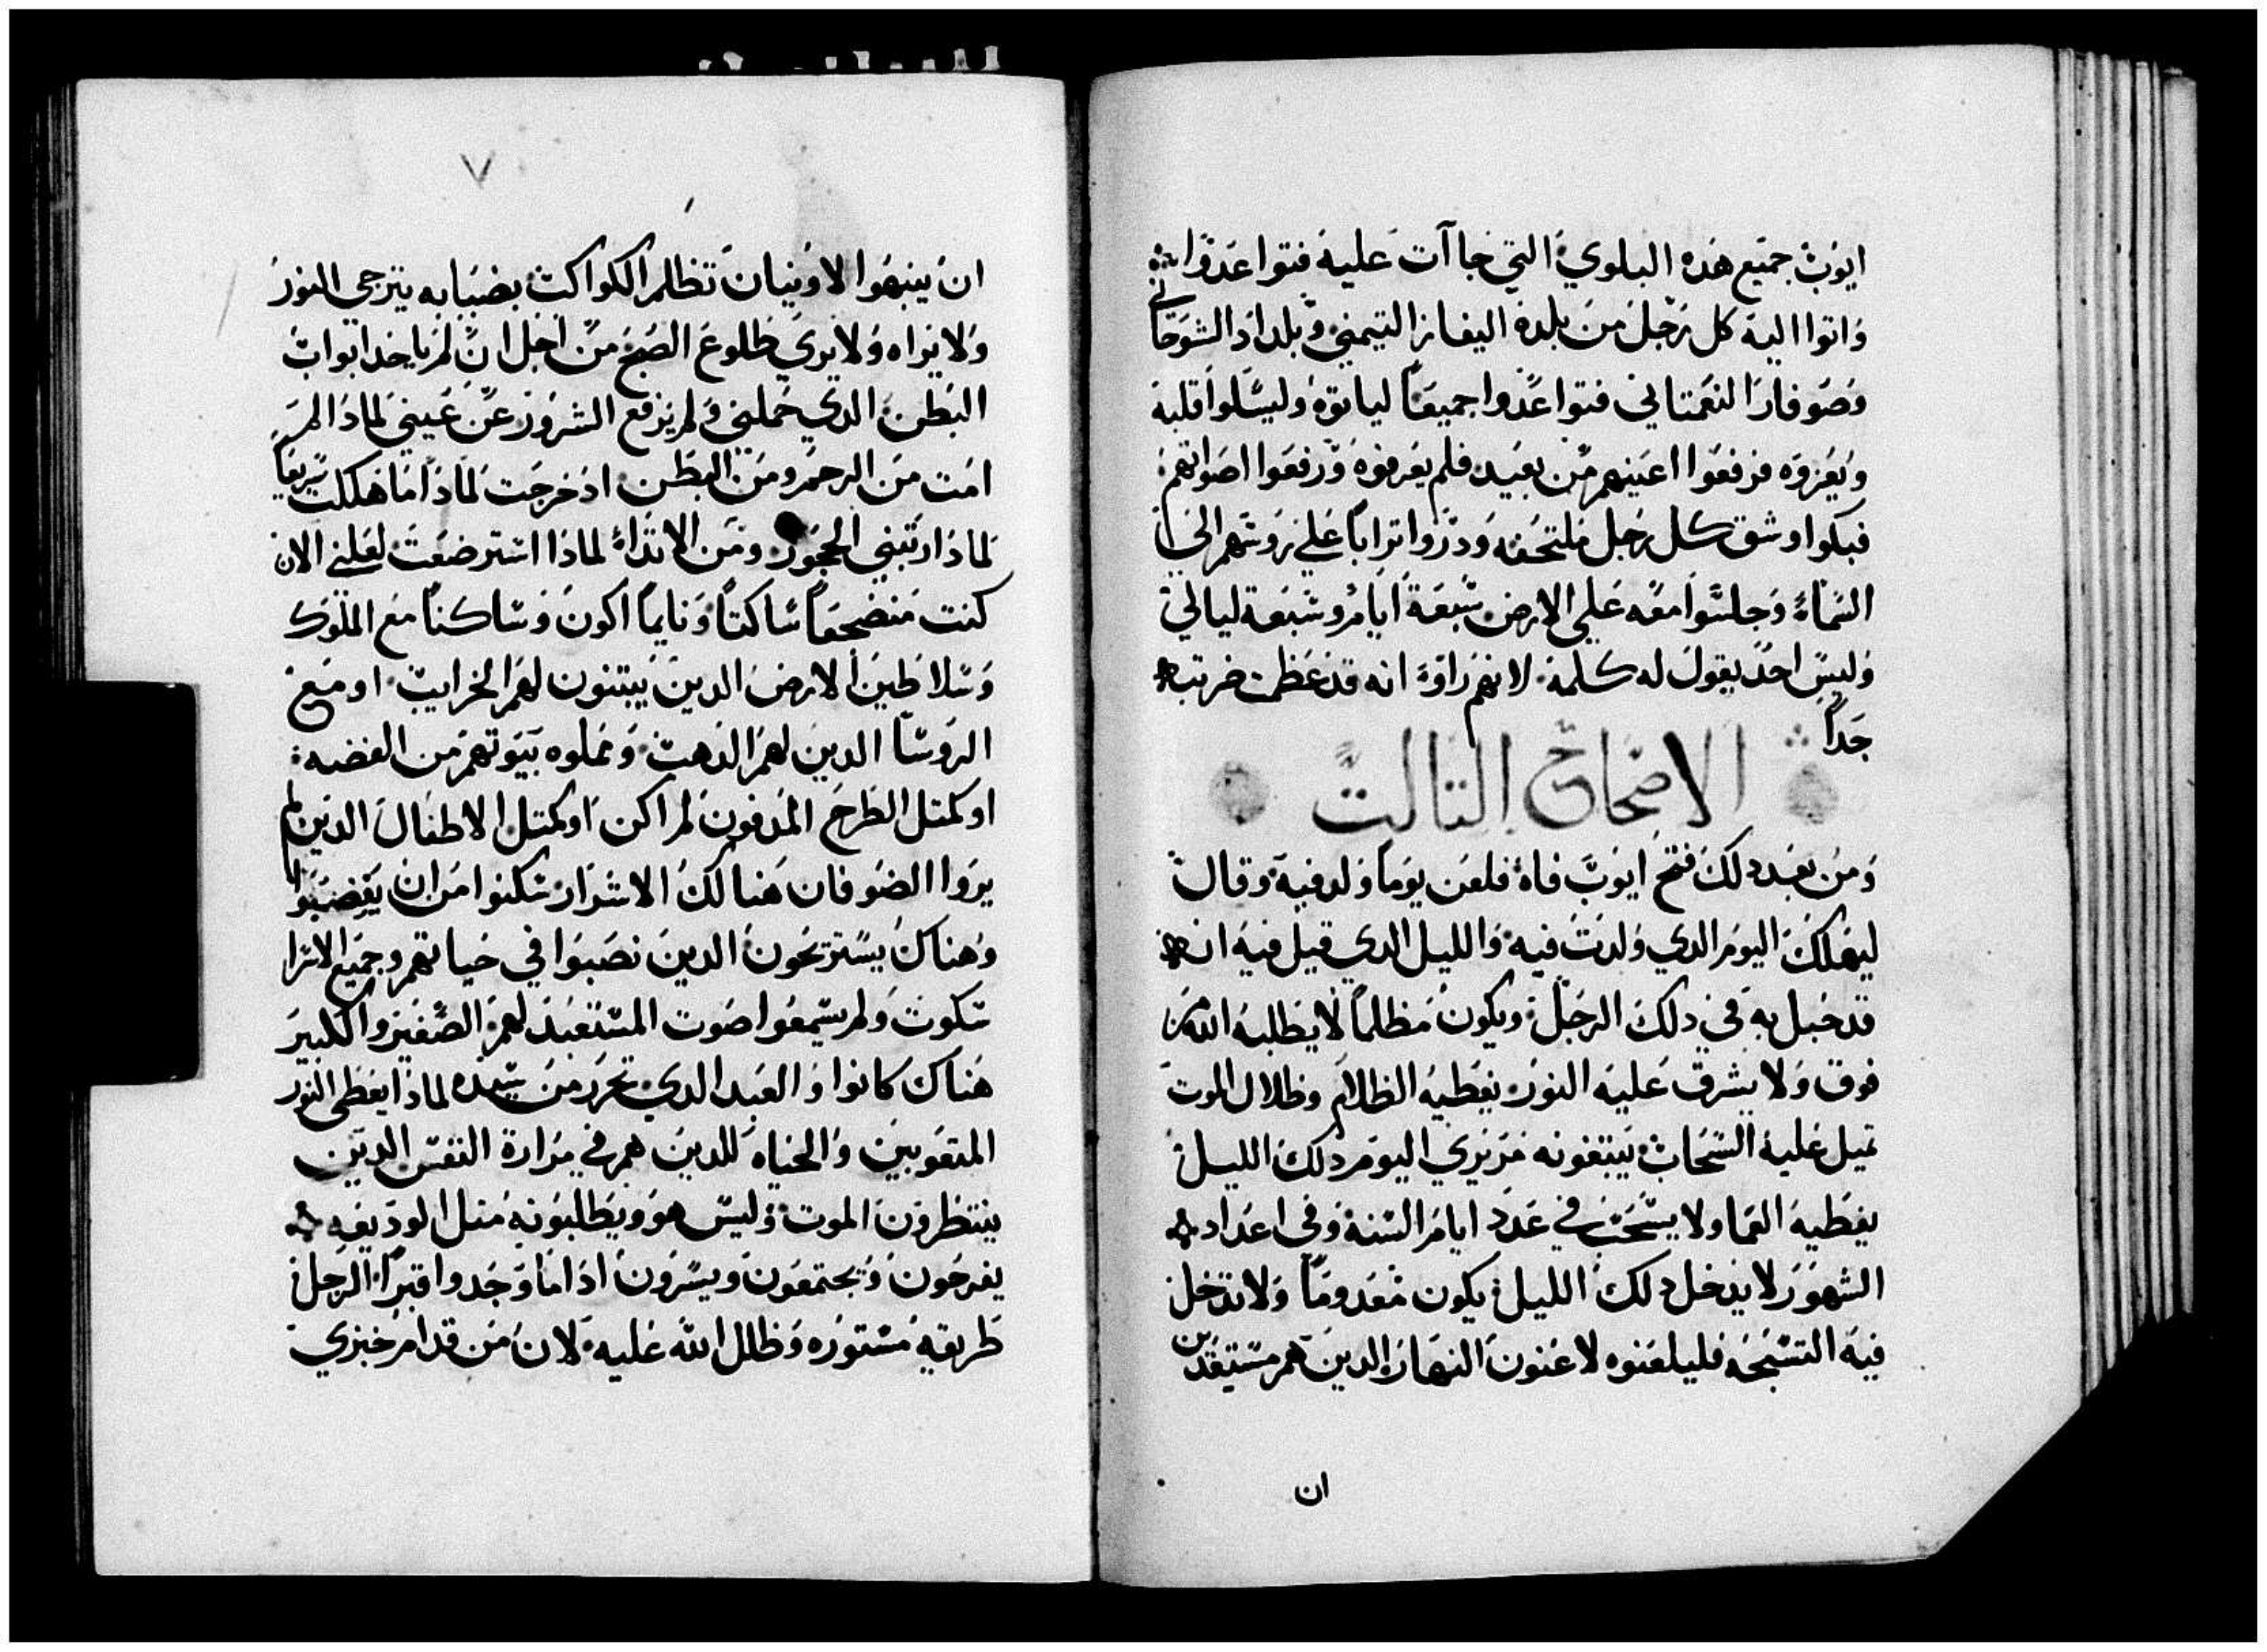 ايوب جميع هذه البلوي التي جاآت عليه فتواعدوا
واتوا اليه كل رجل من بلده اليفاز التيمني وبلداد الشوحاني
وصوفار النعمتاني فتواعدوا جميعاً لياتوه وليسلوا قلبه
ويعزوه فرفعوا اعينهم من بعيد فلم يعرفوه ورفعوا اصواتهم
فبكوا وشق كل رجل ملتحفه ودروا تراباً علي روسهم الي
السماء وجلسوا معه علي الارض سبعة ايام وسبعة ليالي
وليس احد يقول له كلمة لانهم راوه انه قد عظمت ضربته
جداً
الاصحاح التالت
ومن بعد دلك فتح ايوب فاه فلعن يوما ولد فيه وقال
ليهلك اليوم الدي ولدت فيه والليل الدي قيل فيه انه
قد حبل به في دلك الرجل ويكون مظلماً لا يطلبه الله من
فوق ولا يشرق عليه النور يغطيه الظلام وظلال الموت
تميل عليه السحاب يبتغونه مزيري اليوم دلك الليل
يغطيه العما ولا يسحب في عدد ايام السنة وفي اعداد
الشهور لا يدخل دلك الليل يكون معدوماً ولا تدخل
فيه التسبحه فليلعنوه لاعنون النهار الدين هم مستعدين
ان
٧
ان ينبهوا لاونيان تظلم الكواكب بضبابه يترجي النور
ولا يراه ولا يري طلوع الصبح من اجل ان لم ياخد ابواب
البطن الدي حملني ولم يرفع الشرور عن عيني لمادا لم
امت من الرحم ومن البطن اد خرجت لمادا ما هلكت سريعاً
لمادا ربتني الحجور ومن الابتداء لمادا استرضعت لعلني الان
كنت منضجعاً ساكتاً ونايماً اكون وساكناً مع الملوك
وسلاطين الارض الدين يبتنون لهم الخرايب او مع
الروسا الدين لهم الدهب ونملوه بيوتهم من الفضه
او كمتل الطرح المدفون لم اكن او كمتل الاطفال الدين لم
يروا الضو فان هنالك الاشرار سكنوا من ان يغضبوا
وهناك يسترتحون الدين نصبوا في حياتهم وجميع الاسرا
سكوت ولم يسمعوا صوت المستعبد لهم الصغير والكبير
هناك كانوا والعبد الدي تحرر من سيده لمادا يعطي النور
المتعوبين والحياه للدين هم في مرارة النفس الدين
ينتظرون الموت وليس هو ويطلبونه متل الوديعه
يفرحون ويجتمعون ويسرون ادا ما وجدوا قبراً الرجل
طريقه مستوره وظلل الله عليه لان من قدام خبزي